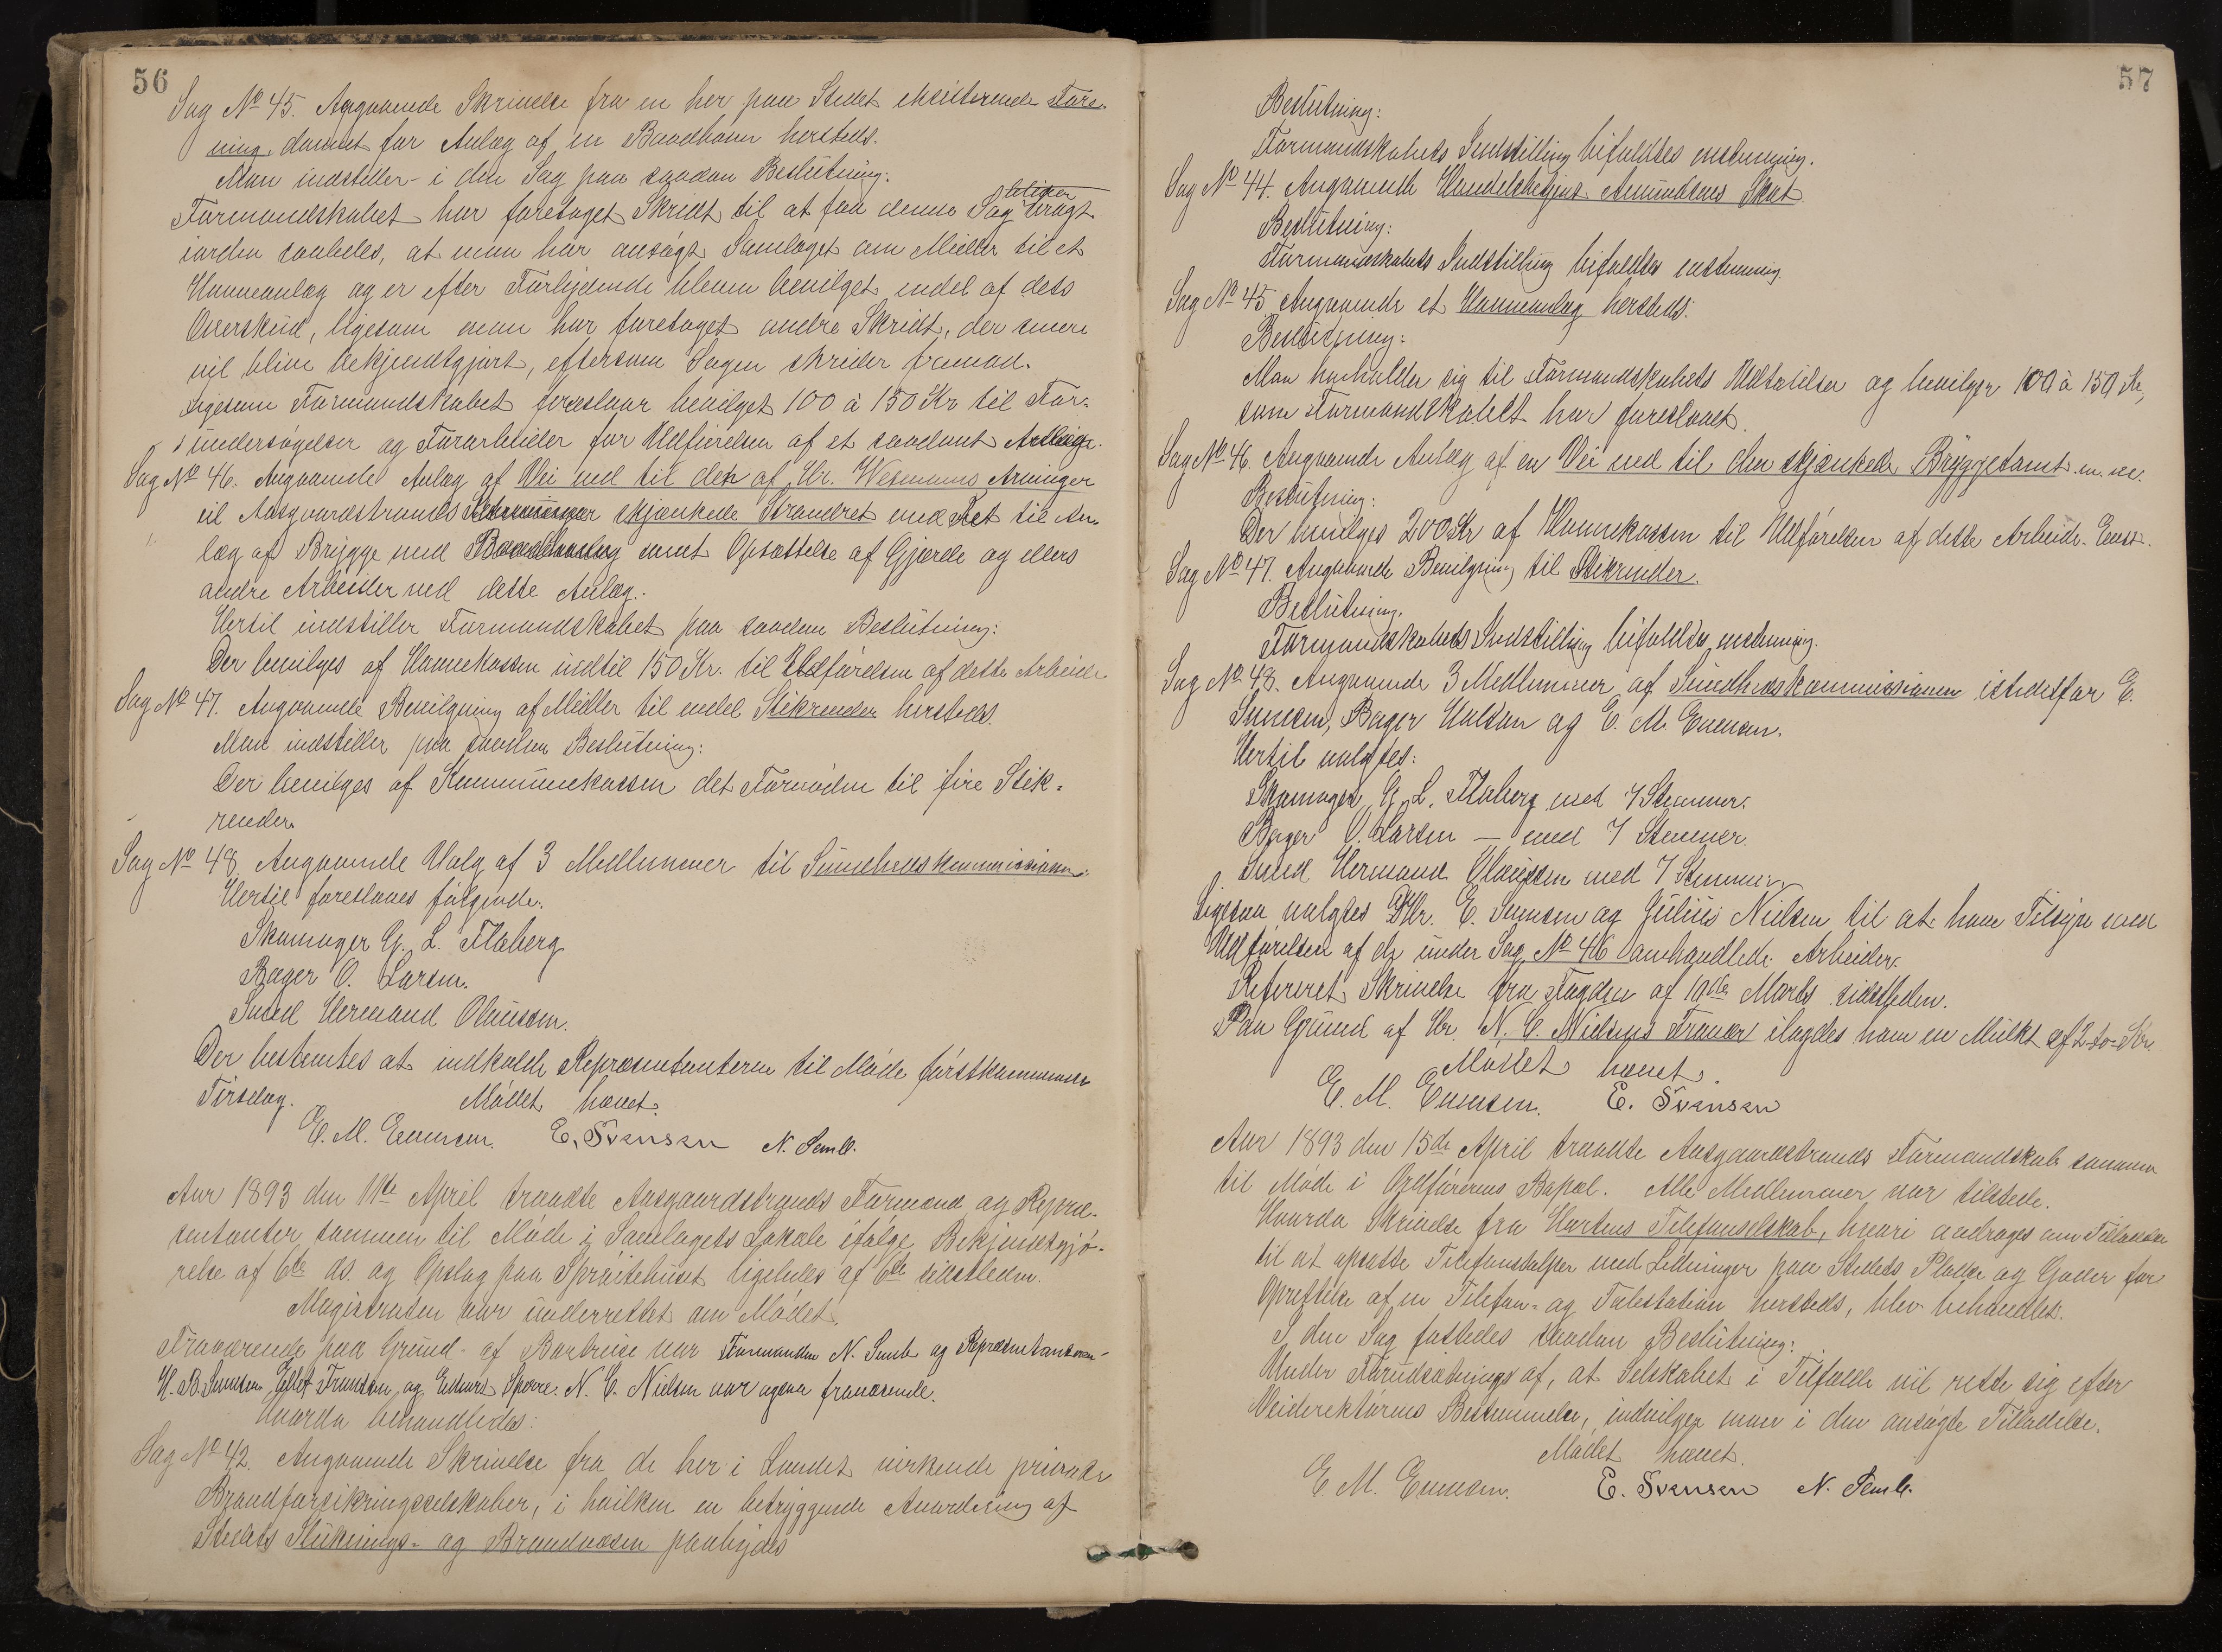 56
Sag No 45. Angaaende Skrivelse fra en her paa Stedet existerende Fore-
ning, dannet for Anlæg af en Baadhavn hersteds.
Man indstiller i den Sag paa saadan Beslutning:
Formandskabet har foretaget Skridt til at faa denne Sag bliver bragt
iorden saaledes, at man har ansøgt Samlaget om Midler til et
Havneanlæg og er efter Forlydende bleven bevilget endel af dets
Overskud, ligesom man har foretaget andre Skridt, der senere
vil blive bekjendtgjort, eftersom Sagen skrider fremad.
Ligesom Formandskabet foreslaar bevilget 100 à 150 Kr til For-
undersøgelser og Forarbeider for Udførelsen af et saadant Anlæg.
Sag No 46. Angaaende Anlæg af Vei ned til den af Hr. Wesmanns Arvinger
til Aasgaardstrands skjænkede Strandret med Ret til An-
læg af Brygge med samt Opsættelse af Gjærde og ellers
andre Arbeider ved dette Anlæg.
Hertil indstiller Formandskabet paa saadan Beslutning:
Der bevilges af Havnekassen indtil 150 Kr. til Udførelsen af dette Arbeide
Sag No 47. Angaaende Bevilgning af Midler til endel Stikrender hersteds.
Man indstiller paa saadan Beslutning:
Der bevilges af Kommunekassen det Fornødne til fire Stik-
render.
Sag No 48. Angaaende Valg af 3 Medlemmer til Sundhedskommissionen.
Hertil foreslaaes følgende:
Skomager G. L. Flaberg
Bager O. Larsen.
Smed Hermand Olausen.
Der bestemtes at indkalde Repræsentanterne til Møde førstkommende
Tirsdag. Mødet hævet.
E. M. Evensen. E. Svensen N. Semb.
Aar 1893 den 11te April traadte Aasgaardstrands Formænd og Repræ-
sentanter sammen til Møde i Samlagets Lokale ifølge Bekjendtgjø-
relse af 6te ds. og Opslag paa Sprøitehuset ligeledes af 6te sidstleden.
Magistraten var underrettet om Mødet.
Fraværende paa Grund af Bortreise var Formanden N. Semb og Repræsentanterne
H. B. Svensen, Ellef Frantsen, og Edvard Sporre. N. C. Nielsen var ogsaa fraværende.
Hvorda behandledes:
Sag No 42. Angaaende Skrivelse fra de her i Landet virkende private
Brandforsikringsselskaber, i hvilken en betryggende Anordning af
Stedets Slukknings- og Brandvæsen paabydes
57
Beslutning:
Formandskabets Indstilling bifaldtes enstemmig.
Sag No 44. Angaaende Handelsbetjent Amundsens Skat.
Beslutning:
Formandskabets Indstilling bifaldtes enstemmig.
Sag No 45. Angaaende et Havneanlæg hersteds.
Beslutning:
Man henholder sig til Formandskabets Udtalelser og bevilger 100 à 150 Kr,
som Formandskabet har foreslaaet.
Sag No 46. Angaaende Anlæg af en Vei ned til den skjænkede Bryggetomt m. m.
Beslutning:
Der bevilges 200 Kr af Havnekassen til Udførelsen af dette Arbeide. Enst.
Sag No 47. Angaaende Bevilgning til Stikrender.
Beslutning.
Formandskabets Indstilling bifaldtes enstemmig.
Sag No 48. Angaaende 3 Medlemmer af Sundhedskommissionen istedetfor E.
Svensen, Bager Halsen og E. M. Evensen.
Hertil valgtes:
Skomager G. L. Flaberg med 7 Stemmer.
Bager O. Larsen – med 7 Stemmer.
Smed Hermand Olausen med 7 Stemmer.
Ligesaa valgtes DHr. E. Svensen og Julius Nielsen til at have Tilsyn med
Udførelsen af de under Sag No 46 omhandlede Arbeider.
Refereret Skrivelse fra Fogden af 10de Marts sidstleden.
Paa Grund af Hr. N. C. Nielsens Fravær ilagdes ham en Mulkt af 2-to-Kr.
Mødet hævet.
E. M. Evensen. E. Svensen
Aar 1893 den 15de April traadte Aasgaardstrands Formandskab sammen
til Møde i Ordførerens Bopæl. Alle Medlemmer var tilstede.
Hvorda Skrivelse fra Hortens Telefonselskab, hvori andrages om Tilladelse
til at opsætte Telefonstolper med Ledninger paa Stedets Pladse og Gader for
Oprettelse af en Telefon- og Talestation hersteds, blev behandlet.
I den Sag fattedes saadan Beslutning:
Under Forudsætning af, at Selskabet i Tilfælde vil rette sig efter
Veidirektørens Bestemmelse, indvilger man i den ansøgte Tilladelse.
Mødet hævet.
E. M. Evensen. E. Svensen N. Semb.